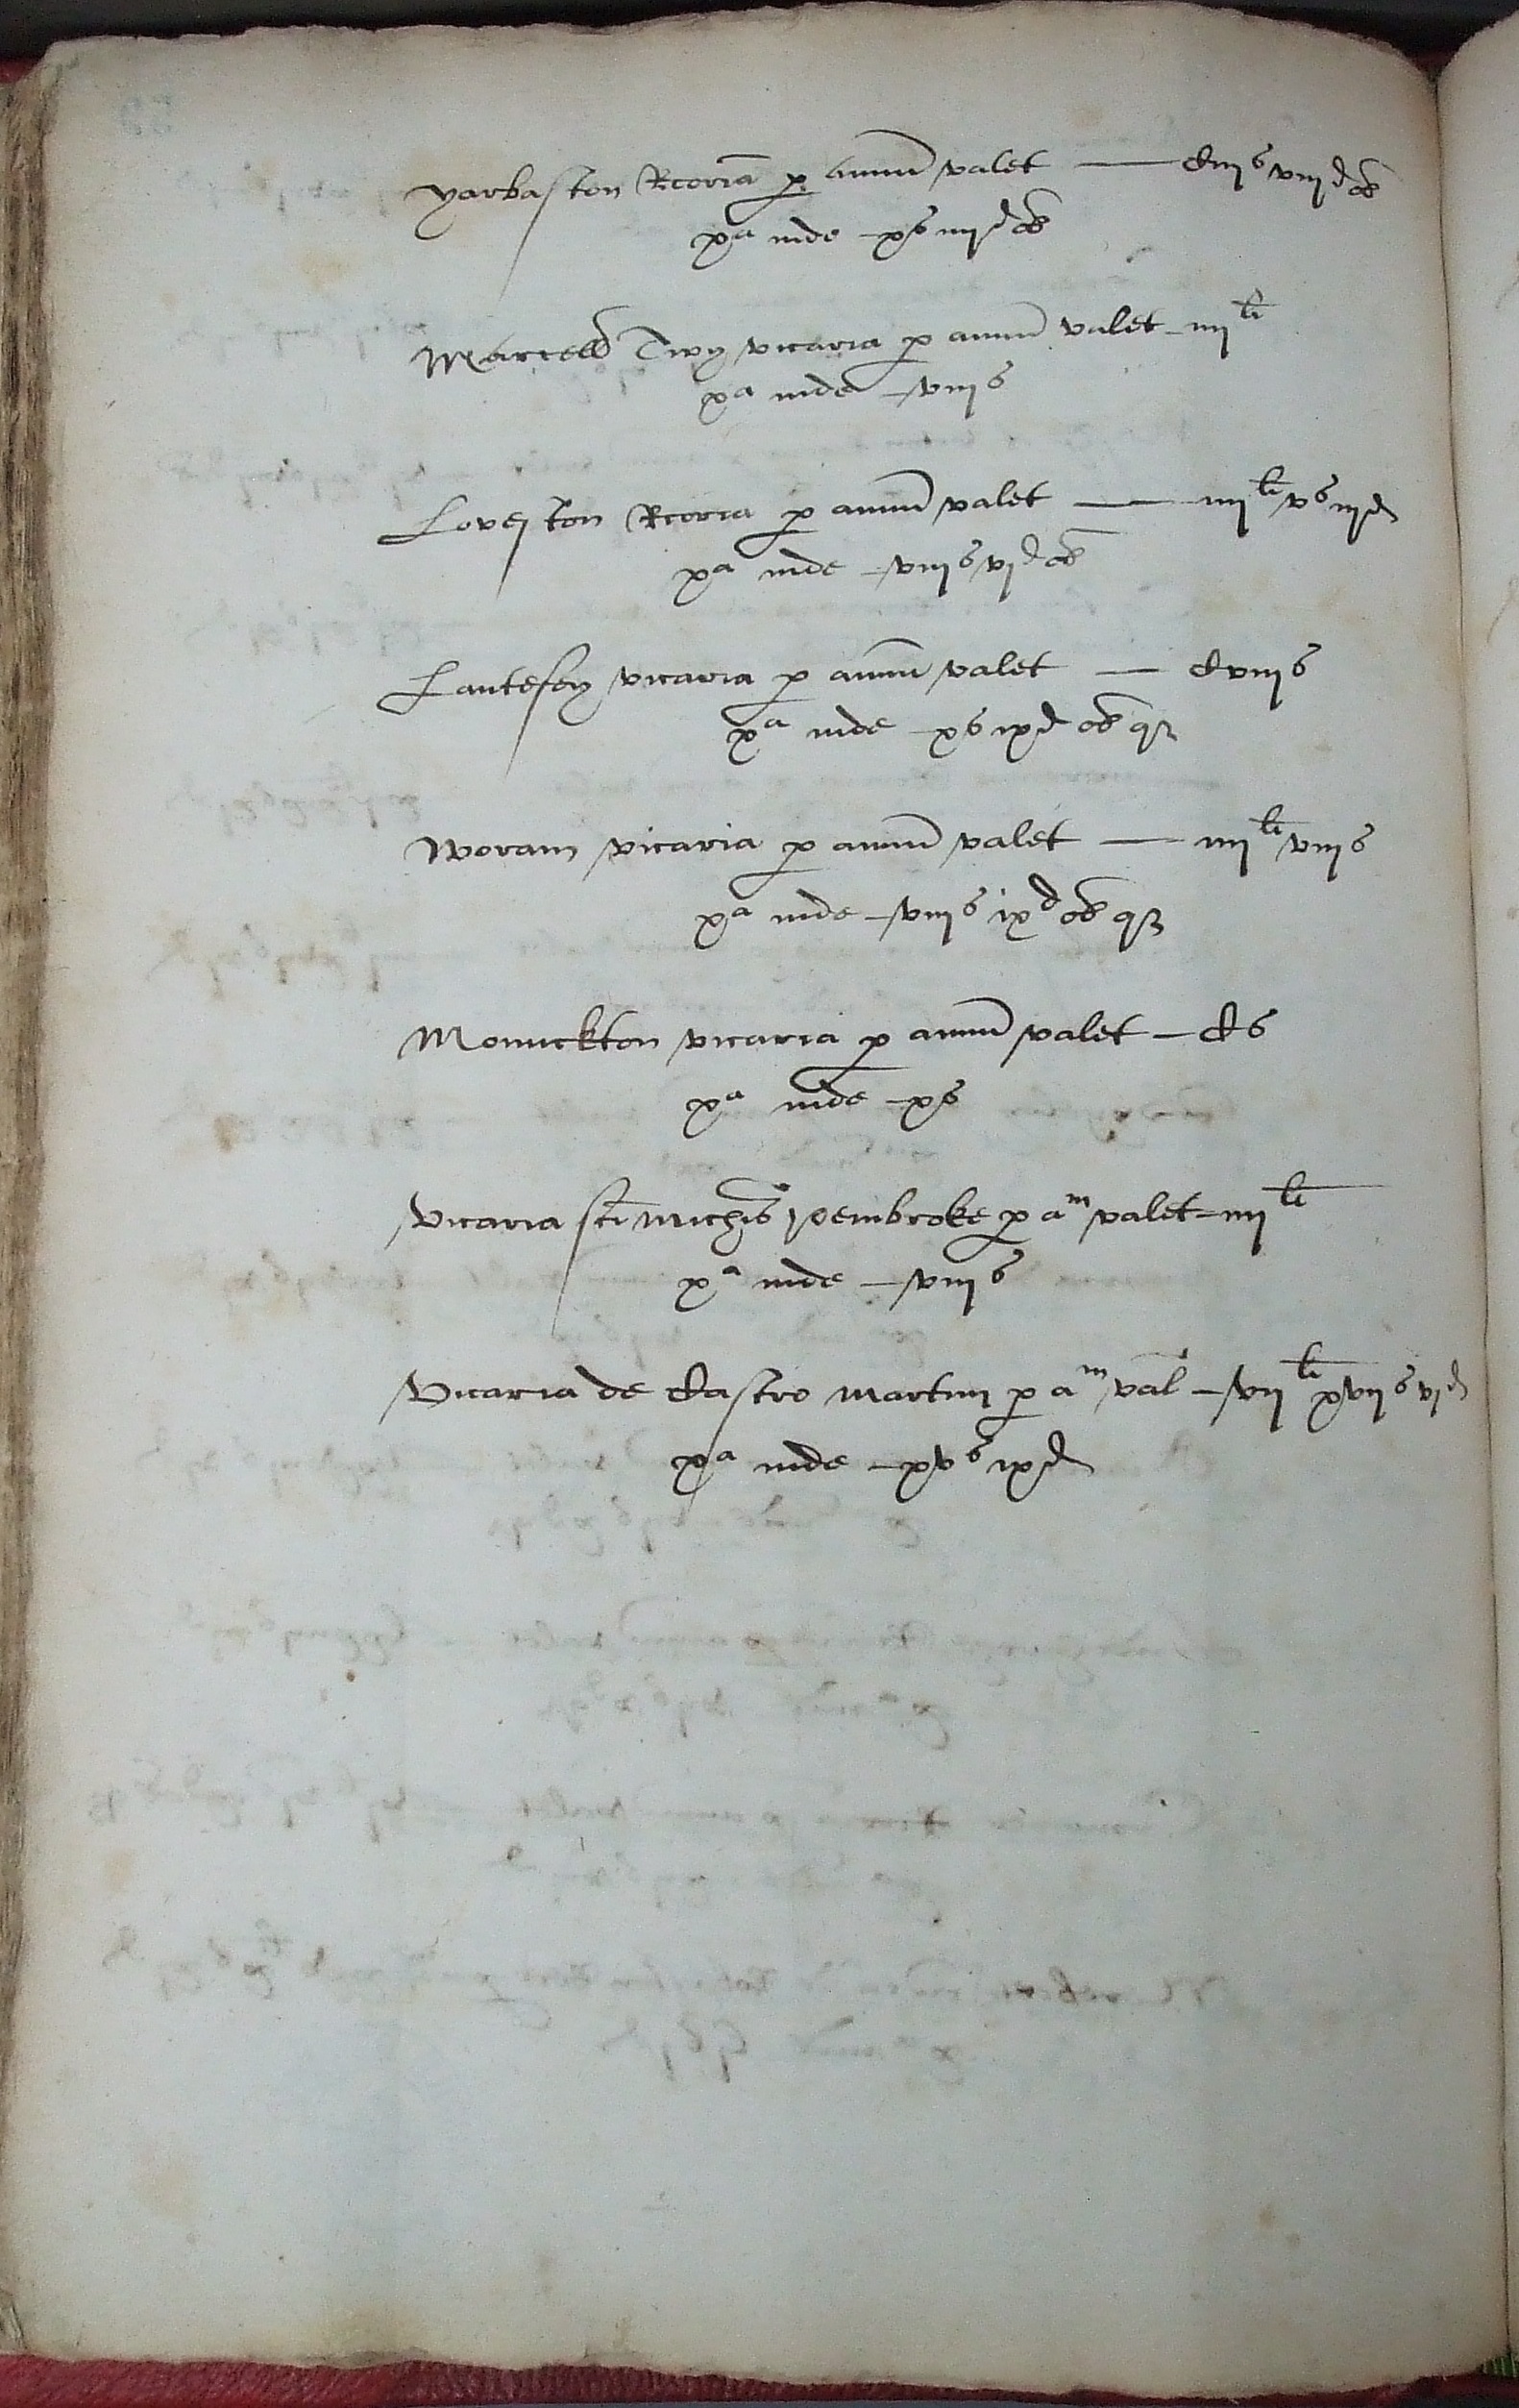 yarbaston Rcoria p annu valet — Ciijs viijd ob
xa inde xs iiijd ob
Martell Twy vicaria p annu valet iiijli
xa inde viijs
Loveston Rcoria p annu valet — iiijli vs iijd
xa inde viijs vjd ob
Lantefey vicaria p annu valet — Cviijs
xa inde xs ixd ob qr
Woram vicaria p annu valet — iiijli viijs
xa inde viijs ixd ob qr
Monnckton vicaria p annu valet — Cs
xa inde xs
Vicaria sci Michis Pembroke p am valet iiijli
xa inde viijs
Vicaria de Castro Martini p am val vijli xvijs vjd
xa inde xvs ixd